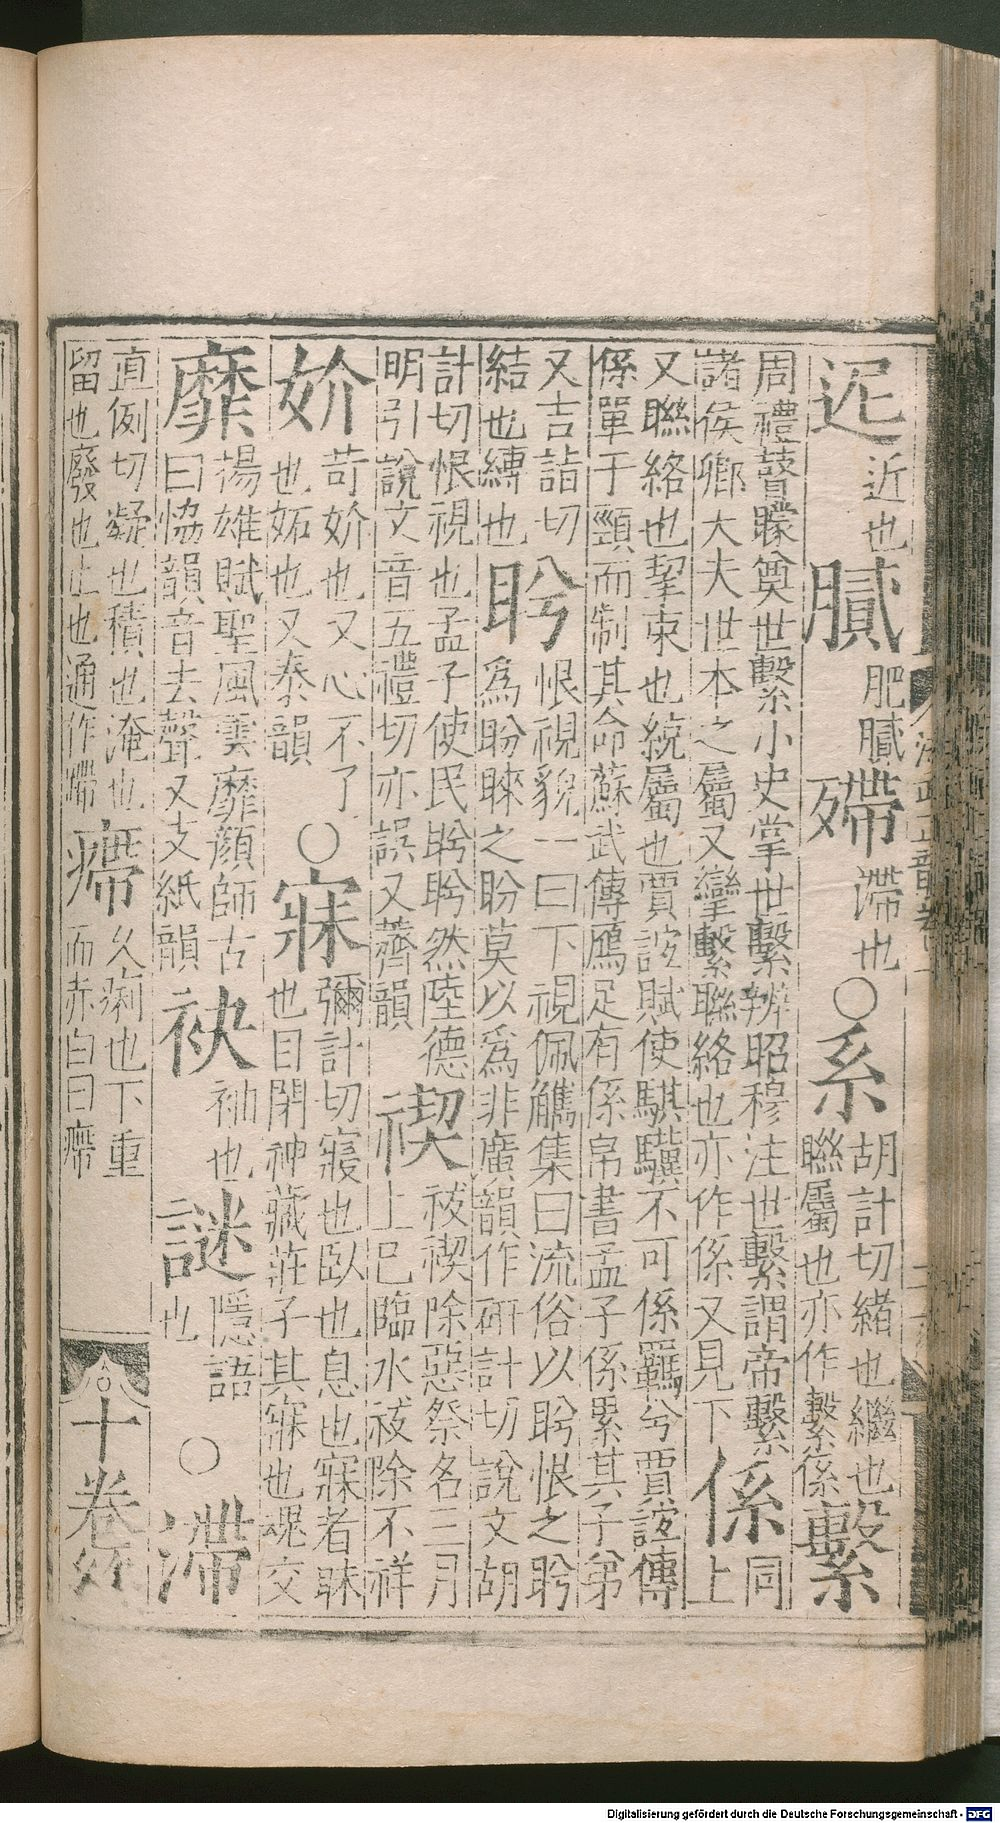 迡近也膩肥膩殢滯也○系胡計切緒也繼也聯屬也亦作繫係繫同上
周禮瞽矇奠世繫小史掌世繫辨昭穆注世繫謂帝繫
諸侯卿大夫世本之屬又攣繫聯絡也亦作係又見下係上
又聯絡也挈束也統屬也賈誼賦使騏驥不可係羈兮賈誼傳
係單于頸而制其命蘇武傳鴈足有係帛書孟子係累其子弟
又吉詣切結也縛也盻恨視貌一曰下視佩觿集曰流俗以盻恨之盻
爲盼睞之盼莫以爲非廣韻作研計切說文胡
計切恨視也孟子使民盻盻然陸德明引說文音五禮切亦誤又薺韻禊祓禊除惡祭名三月
上巳臨水祓除不祥
妎苛妎也又心不了也妬也又泰韻○寐彌計切寢也臥也息也寐者眛
也目閉神藏莊子其寐也魂交
靡揚雄賦聖風雲靡顏師古曰協韻音去聲又支紙韻袂袖也謎隱語也○滯
直例切凝也積也淹也留也廢也止也通作蹛㿃久痢也下重而赤白曰㿃
十卷
Digitalisierung gefördert durch die Deutsche Forschungsgemeinschaft - DFG